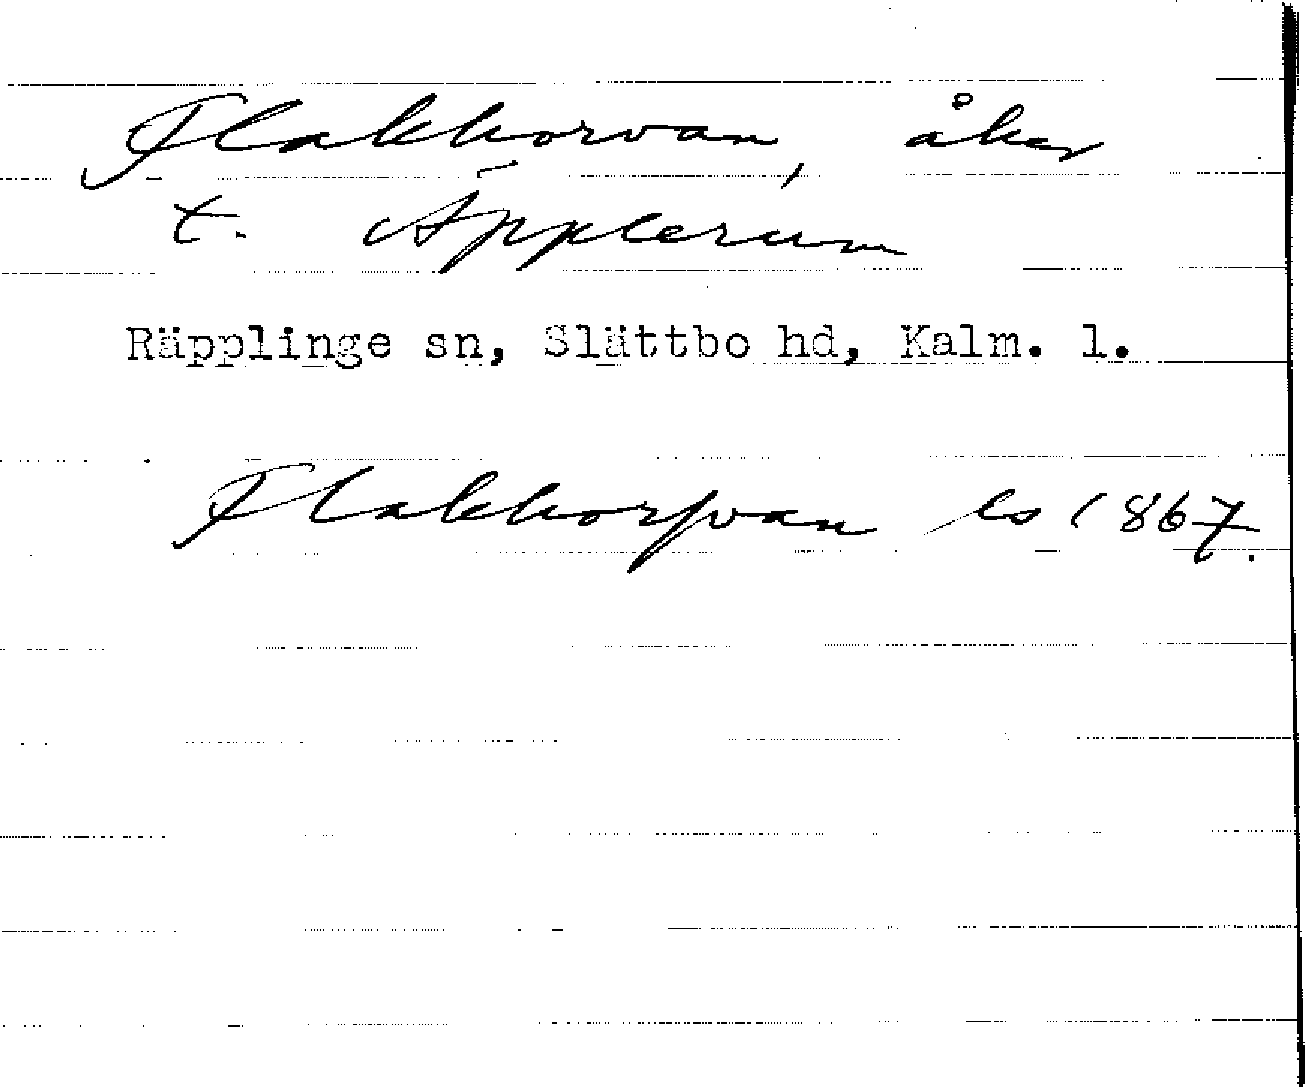 Flakhorvan, åker
t. Äpplerum
Räpplinge sn, Slättbo hd, Kalm. l.
Flakhorfvan ls 1867.